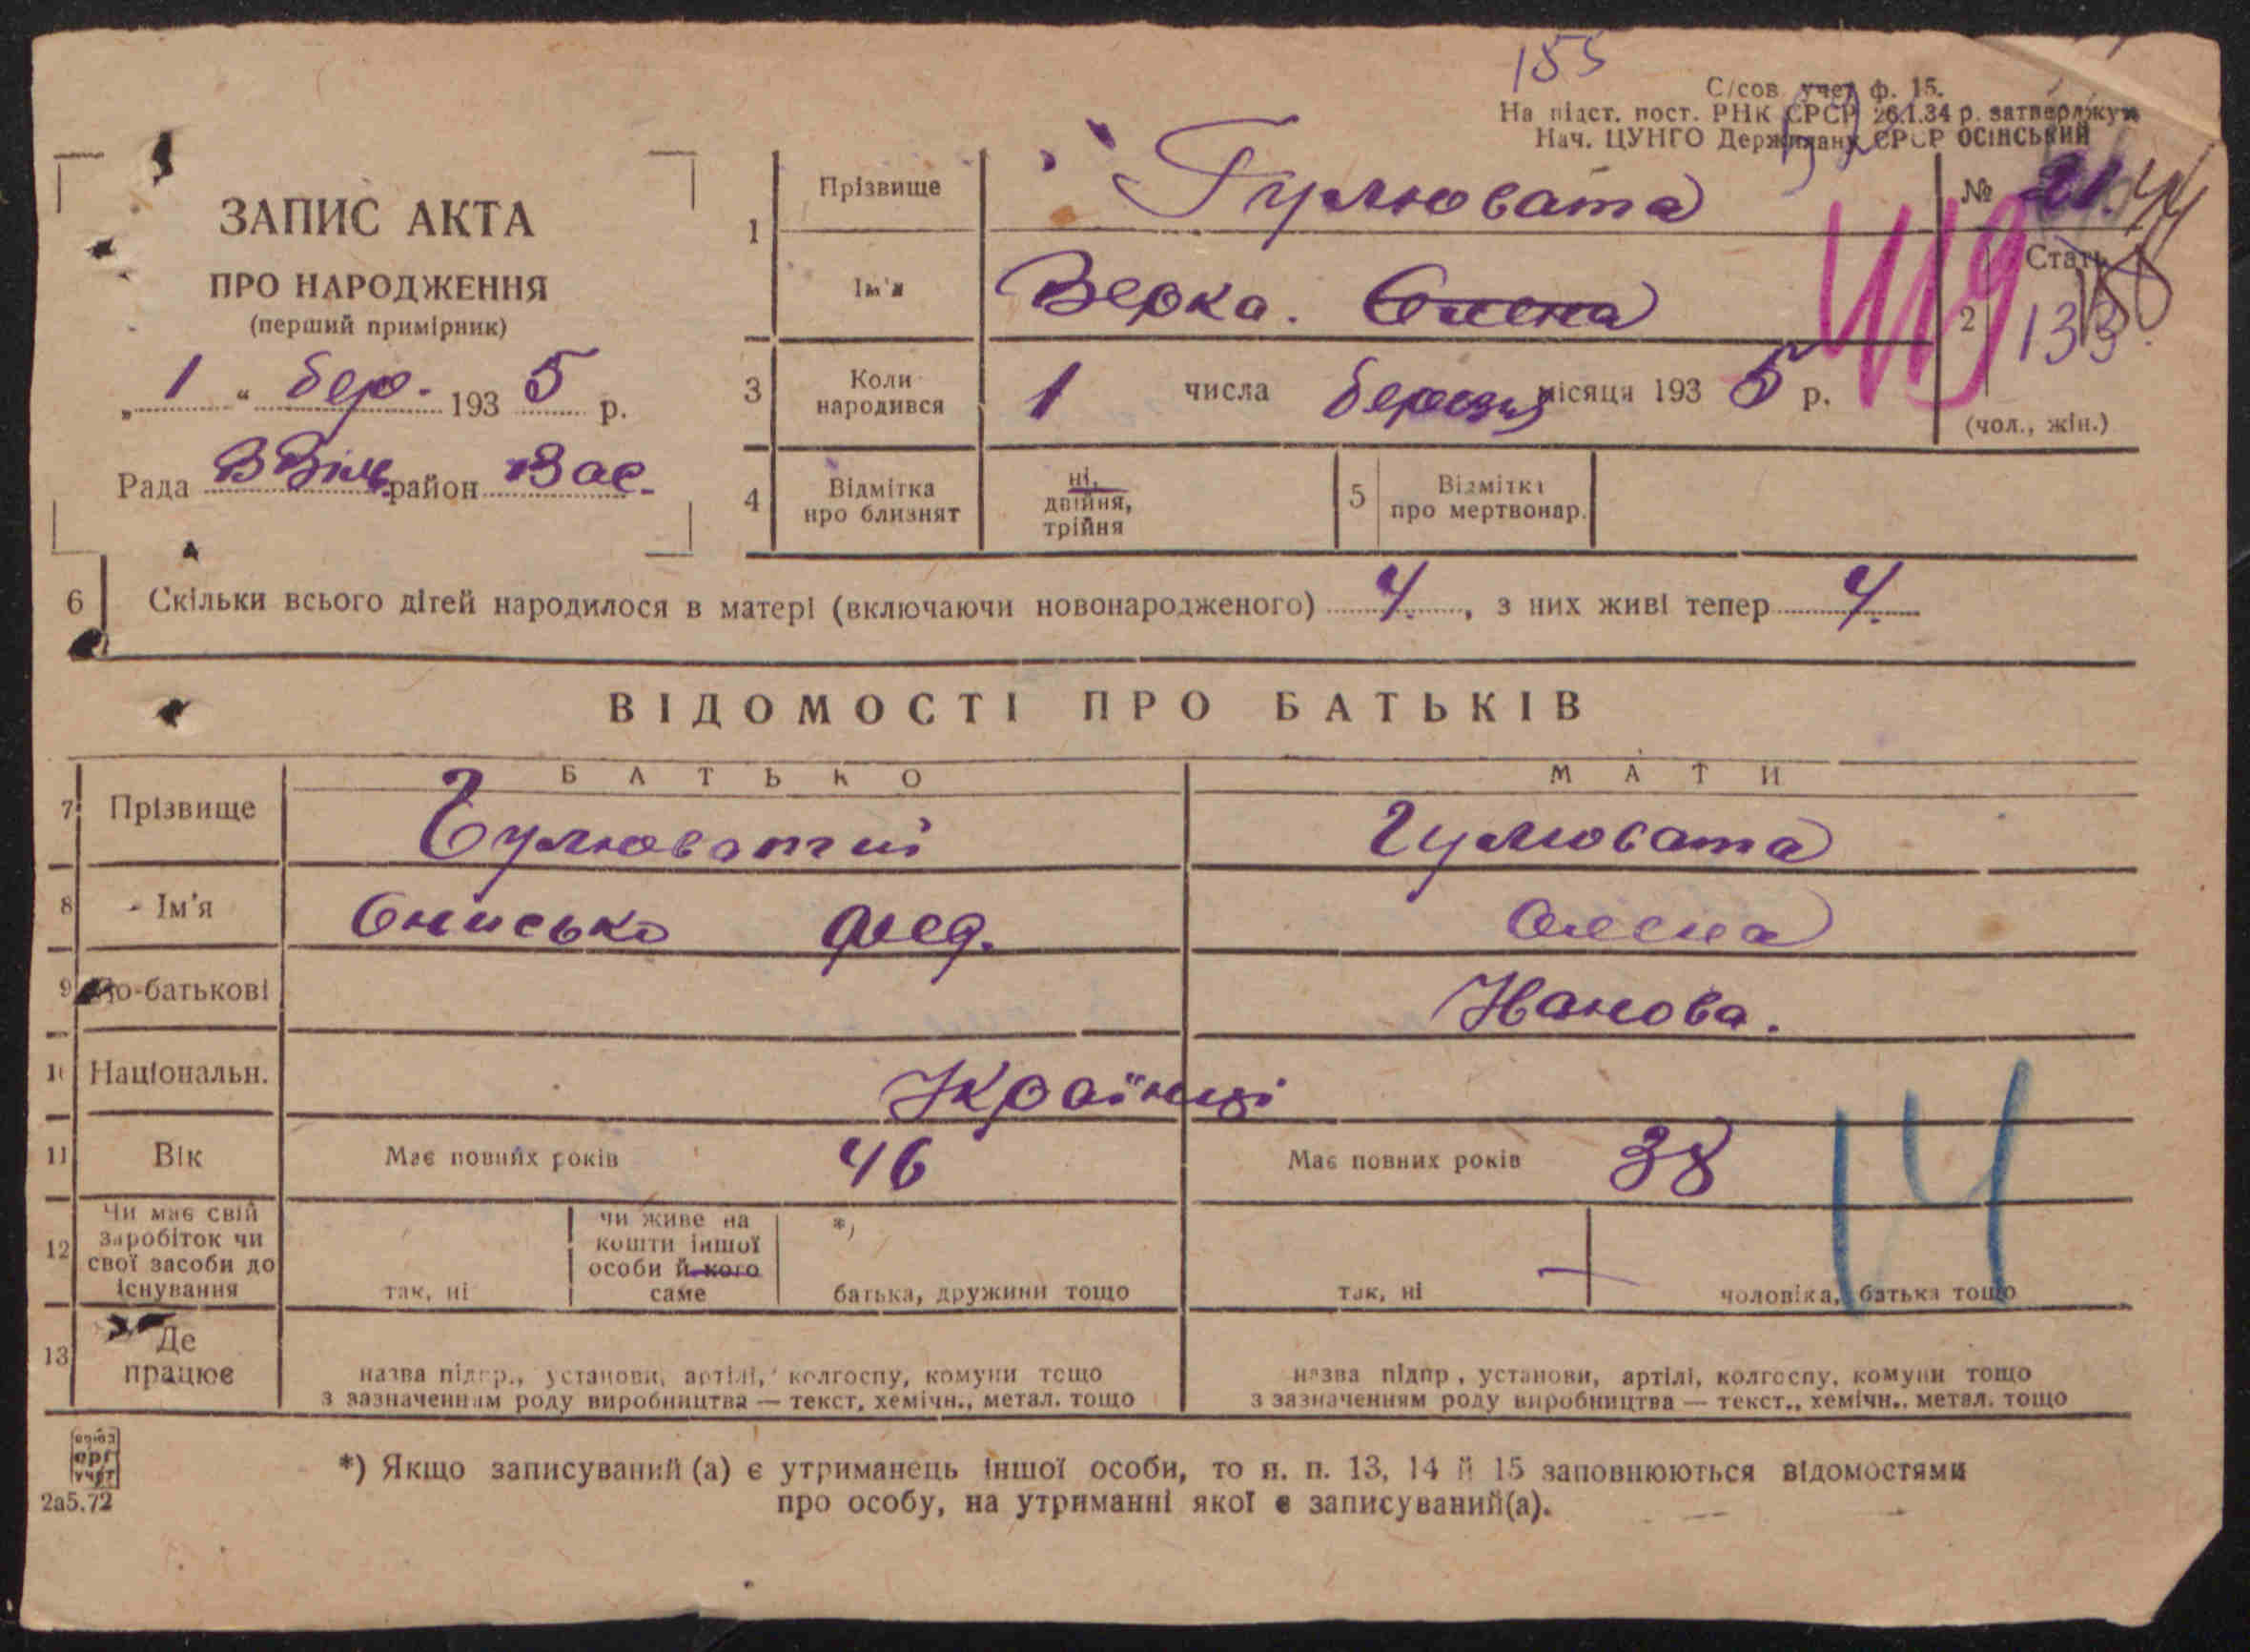 155
С/сов учет ф. 15.
На підст. пост. РНК СРСР 26.1.34 р. затверджую
Нач. ЦУНГО Держплану СРСР ОСІНСЬКИЙ
ЗАПИС АКТА
ПРО НАРОДЖЕННЯ
(перший примірник)
„ 1 “ бер. 193 5 р.
Рада ВВіль. район Вас.
1 Прізвище Гулювата № 21. 44
Ім'я Верка. Олена 119
2 Стать 133
(чол., жін.)
3 Коли народився 1 числа березня місяця 193 5 р.
4 Відмітка про близнят ні, двійня, трійня
5 Відмітка про мертвонар.
6 Скільки всього дітей народилося в матері (включаючи новонародженого) 4. , з них живі тепер 4.
ВІДОМОСТІ ПРО БАТЬКІВ
БАТЬКО МАТИ
7 Прізвище Гулюватий Гулювата
8 Ім'я Онисько Фед. Олена
9 По-батькові Іванова.
10 Національн. Українці
11 Вік Має повних років 46 Має повних років 38 14
12 Чи має свій заробіток чи свої засоби до існування так, ні чи живе на кошти іншої особи й кого саме *) батька, дружини тощо так, ні чоловіка, батька тощо
13 Де працює назва підпр., установи, артілі, колгоспу, комуни тощо назва підпр., установи, артілі, колгоспу, комуни тощо
з зазначенням роду виробництва — текст, хемічн., метал. тощо з зазначенням роду виробництва — текст., хемічн., метал. тощо
союз
орг
учет
2а5.72
*) Якщо записуваний (а) є утриманець іншої особи, то п. п. 13, 14 й 15 заповнюються відомостями
про особу, на утриманні якої є записуваний(а).